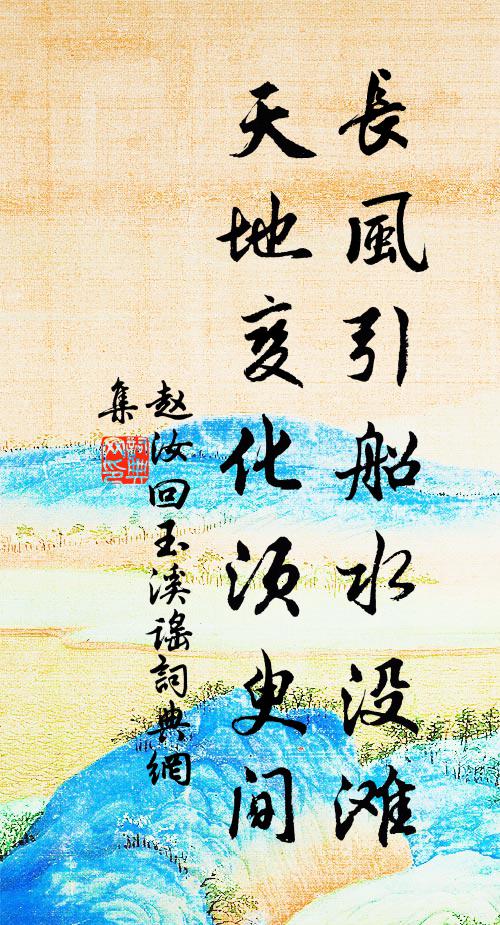 長風引船水没滩
天地变化须臾间
赵汝回玉溪谣詞典網
集